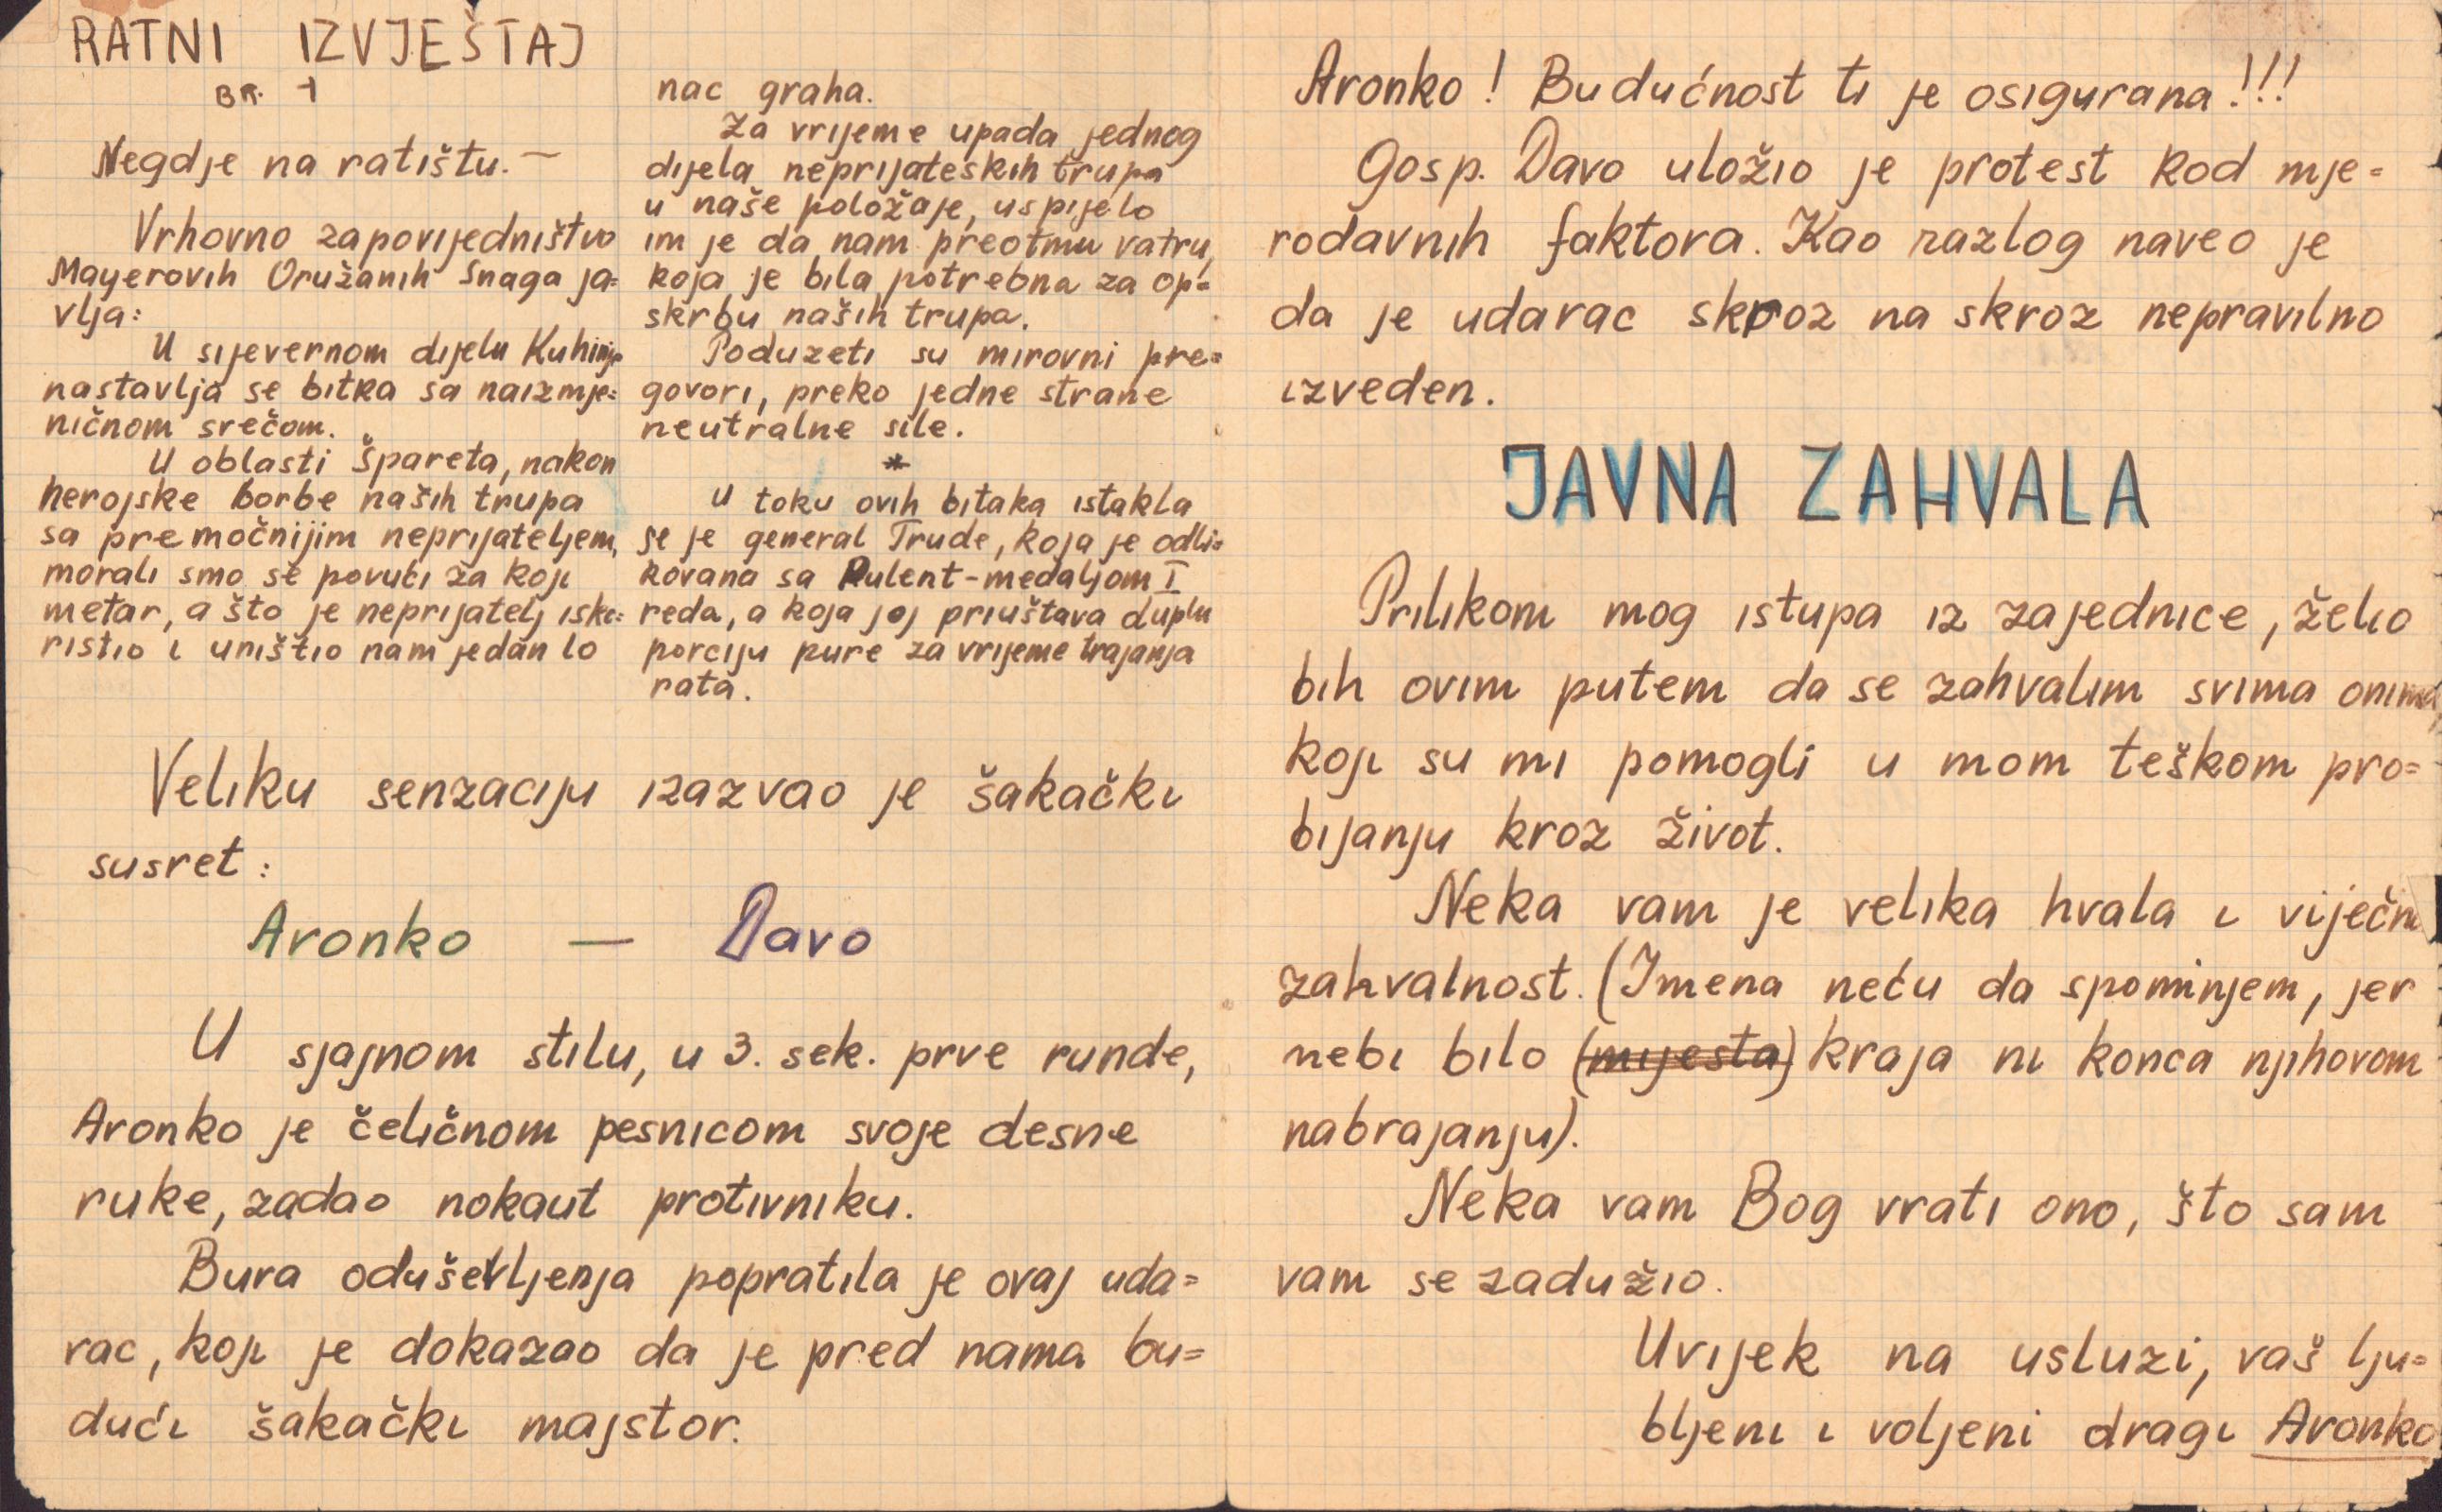 RATNI IZVJEŠTAJ
BR. 1
Negdje na ratištu. —
Vrhovno zapovijedništvo
Mayerovih Oružanih Snaga ja=
vlja:
U sijevernom dijelu Kuhinje
nastavlja se bitka sa naizmje=
ničnom srečom.
U oblasti Špareta, nakon
herojske borbe naših trupa
sa premočnijim neprijateljem,
morali smo se povući za koji
metar, a što je neprijatelj isko=
ristio i uništio nam jedan lo
nac graha.
Za vrijeme upada jednog
dijela neprijateskih trupa
u naše položaje, uspijelo
im je da nam preotmu vatru,
koja je bila potrebna za op=
skrbu naših trupa.
Poduzeti su mirovni pre=
govori, preko jedne strane
neutralne sile.
*
U toku ovih bitaka istakla
se je general Trude, koja je odli=
kovana sa Pulent-medaljom I
reda, a koja joj priuštava duplu
porciju pure za vrijeme trajanja
rata.
Veliku senzaciju izazvao je šakački
susret:
Aronko — Davo
U sjajnom stilu, u 3. sek. prve runde,
Aronko je čeličnom pesnicom svoje desne
ruke, zadao nokaut protivniku.
Bura oduševljenja popratila je ovaj uda=
rac, koji je dokazao da je pred nama bu=
dući šakački majstor.
Aronko! Budućnost ti je osigurana!!!
Gosp. Davo uložio je protest kod mje=
rodavnih faktora. Kao razlog naveo je
da je udarac skroz na skroz nepravilno
izveden.
JAVNA ZAHVALA
Prilikom mog istupa iz zajednice, želio
bih ovim putem da se zahvalim svima onima,
koji su mi pomogli u mom teškom pro=
bijanju kroz život.
Neka vam je velika hvala i viječna
zahvalnost. (Imena neću da spominjem, jer
nebi bilo (mijesta) kraja ni konca njihovom
nabrajanju).
Neka vam Bog vrati ono, što sam
vam se zadužio.
Uvijek na usluzi, vaš lju=
bljeni i voljeni dragi Aronko